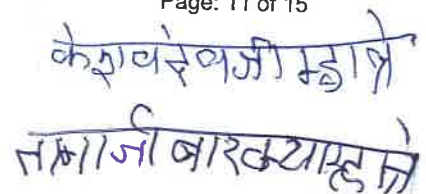 Page: 11 of 15
केशव देवजी म्हात्रे
तानाजी बारक्या म्हात्रे